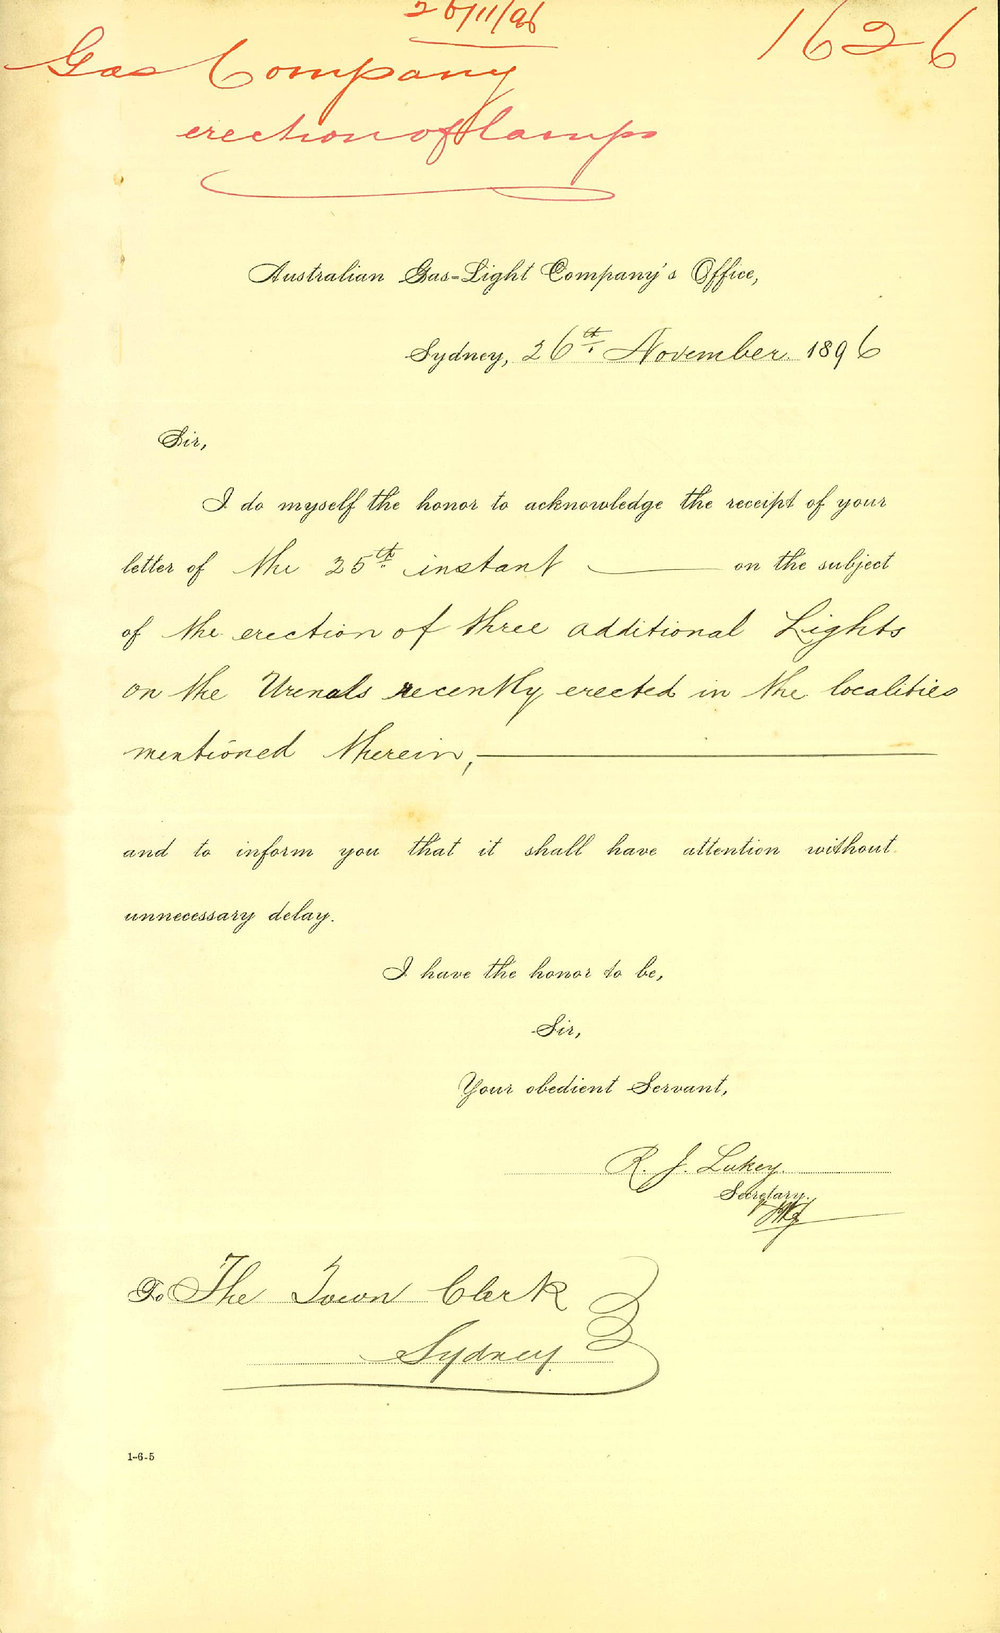 26/11/96
1626
Gas Company
erection of lamps
Australian Gas-Light Company's Office,
Sydney, 26th November 1896
Sir,
I do myself the honor to acknowledge the receipt of your
letter of the 25th instant on the subject
of the erection of three additional Lights
on the Urenals recently erected in the localities
mentioned therein,
and to inform you that it shall have attention without
unnecessary delay.
I have the honor to be,
Sir,
Your obedient Servant,
R. J. Lukey.
Secretary.
To The Town Clerk
Sydney
1-6-5